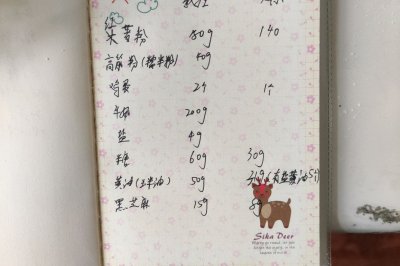 木薯粉 80g 140
高筋粉(糯米粉) 40g
鸡蛋 2个 1个
牛奶 200g
盐 4g
糖 60g 30g
黄油(玉米油) 50g (有盐黄油
黑芝麻 15g
Sika Deer